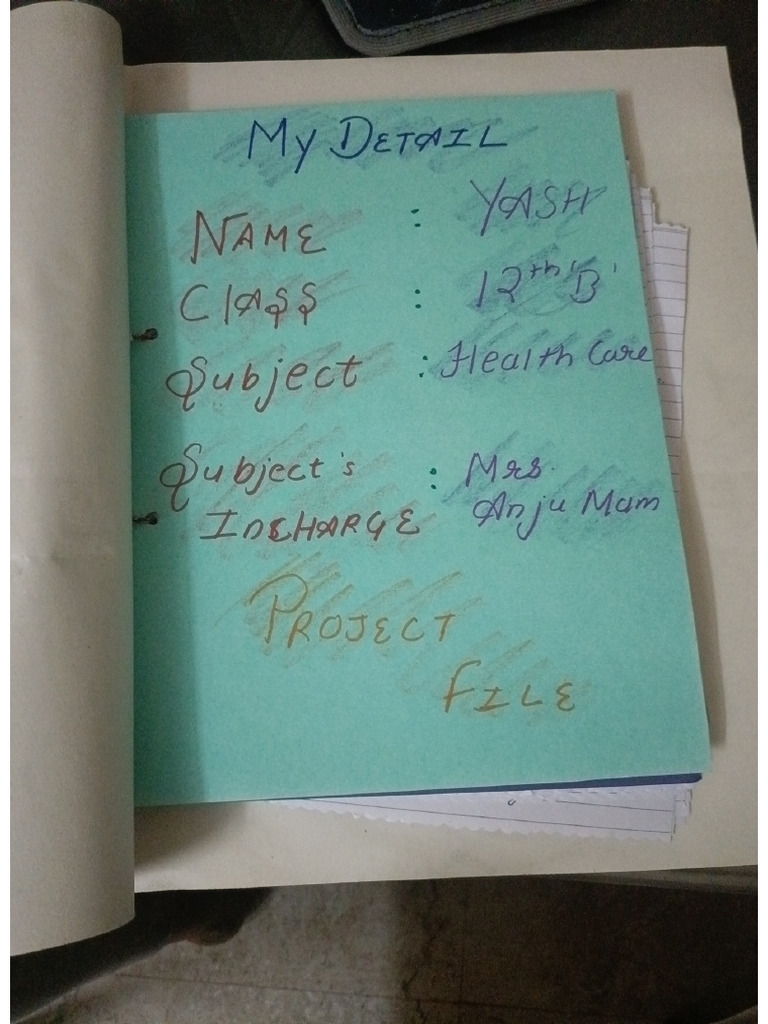 MY DETAIL
NAME : YASH
Class : 12th 'B'
Subject : Health Care
Subject's : Mrs.
INCHARGE Anju Mam
PROJECT
FILE